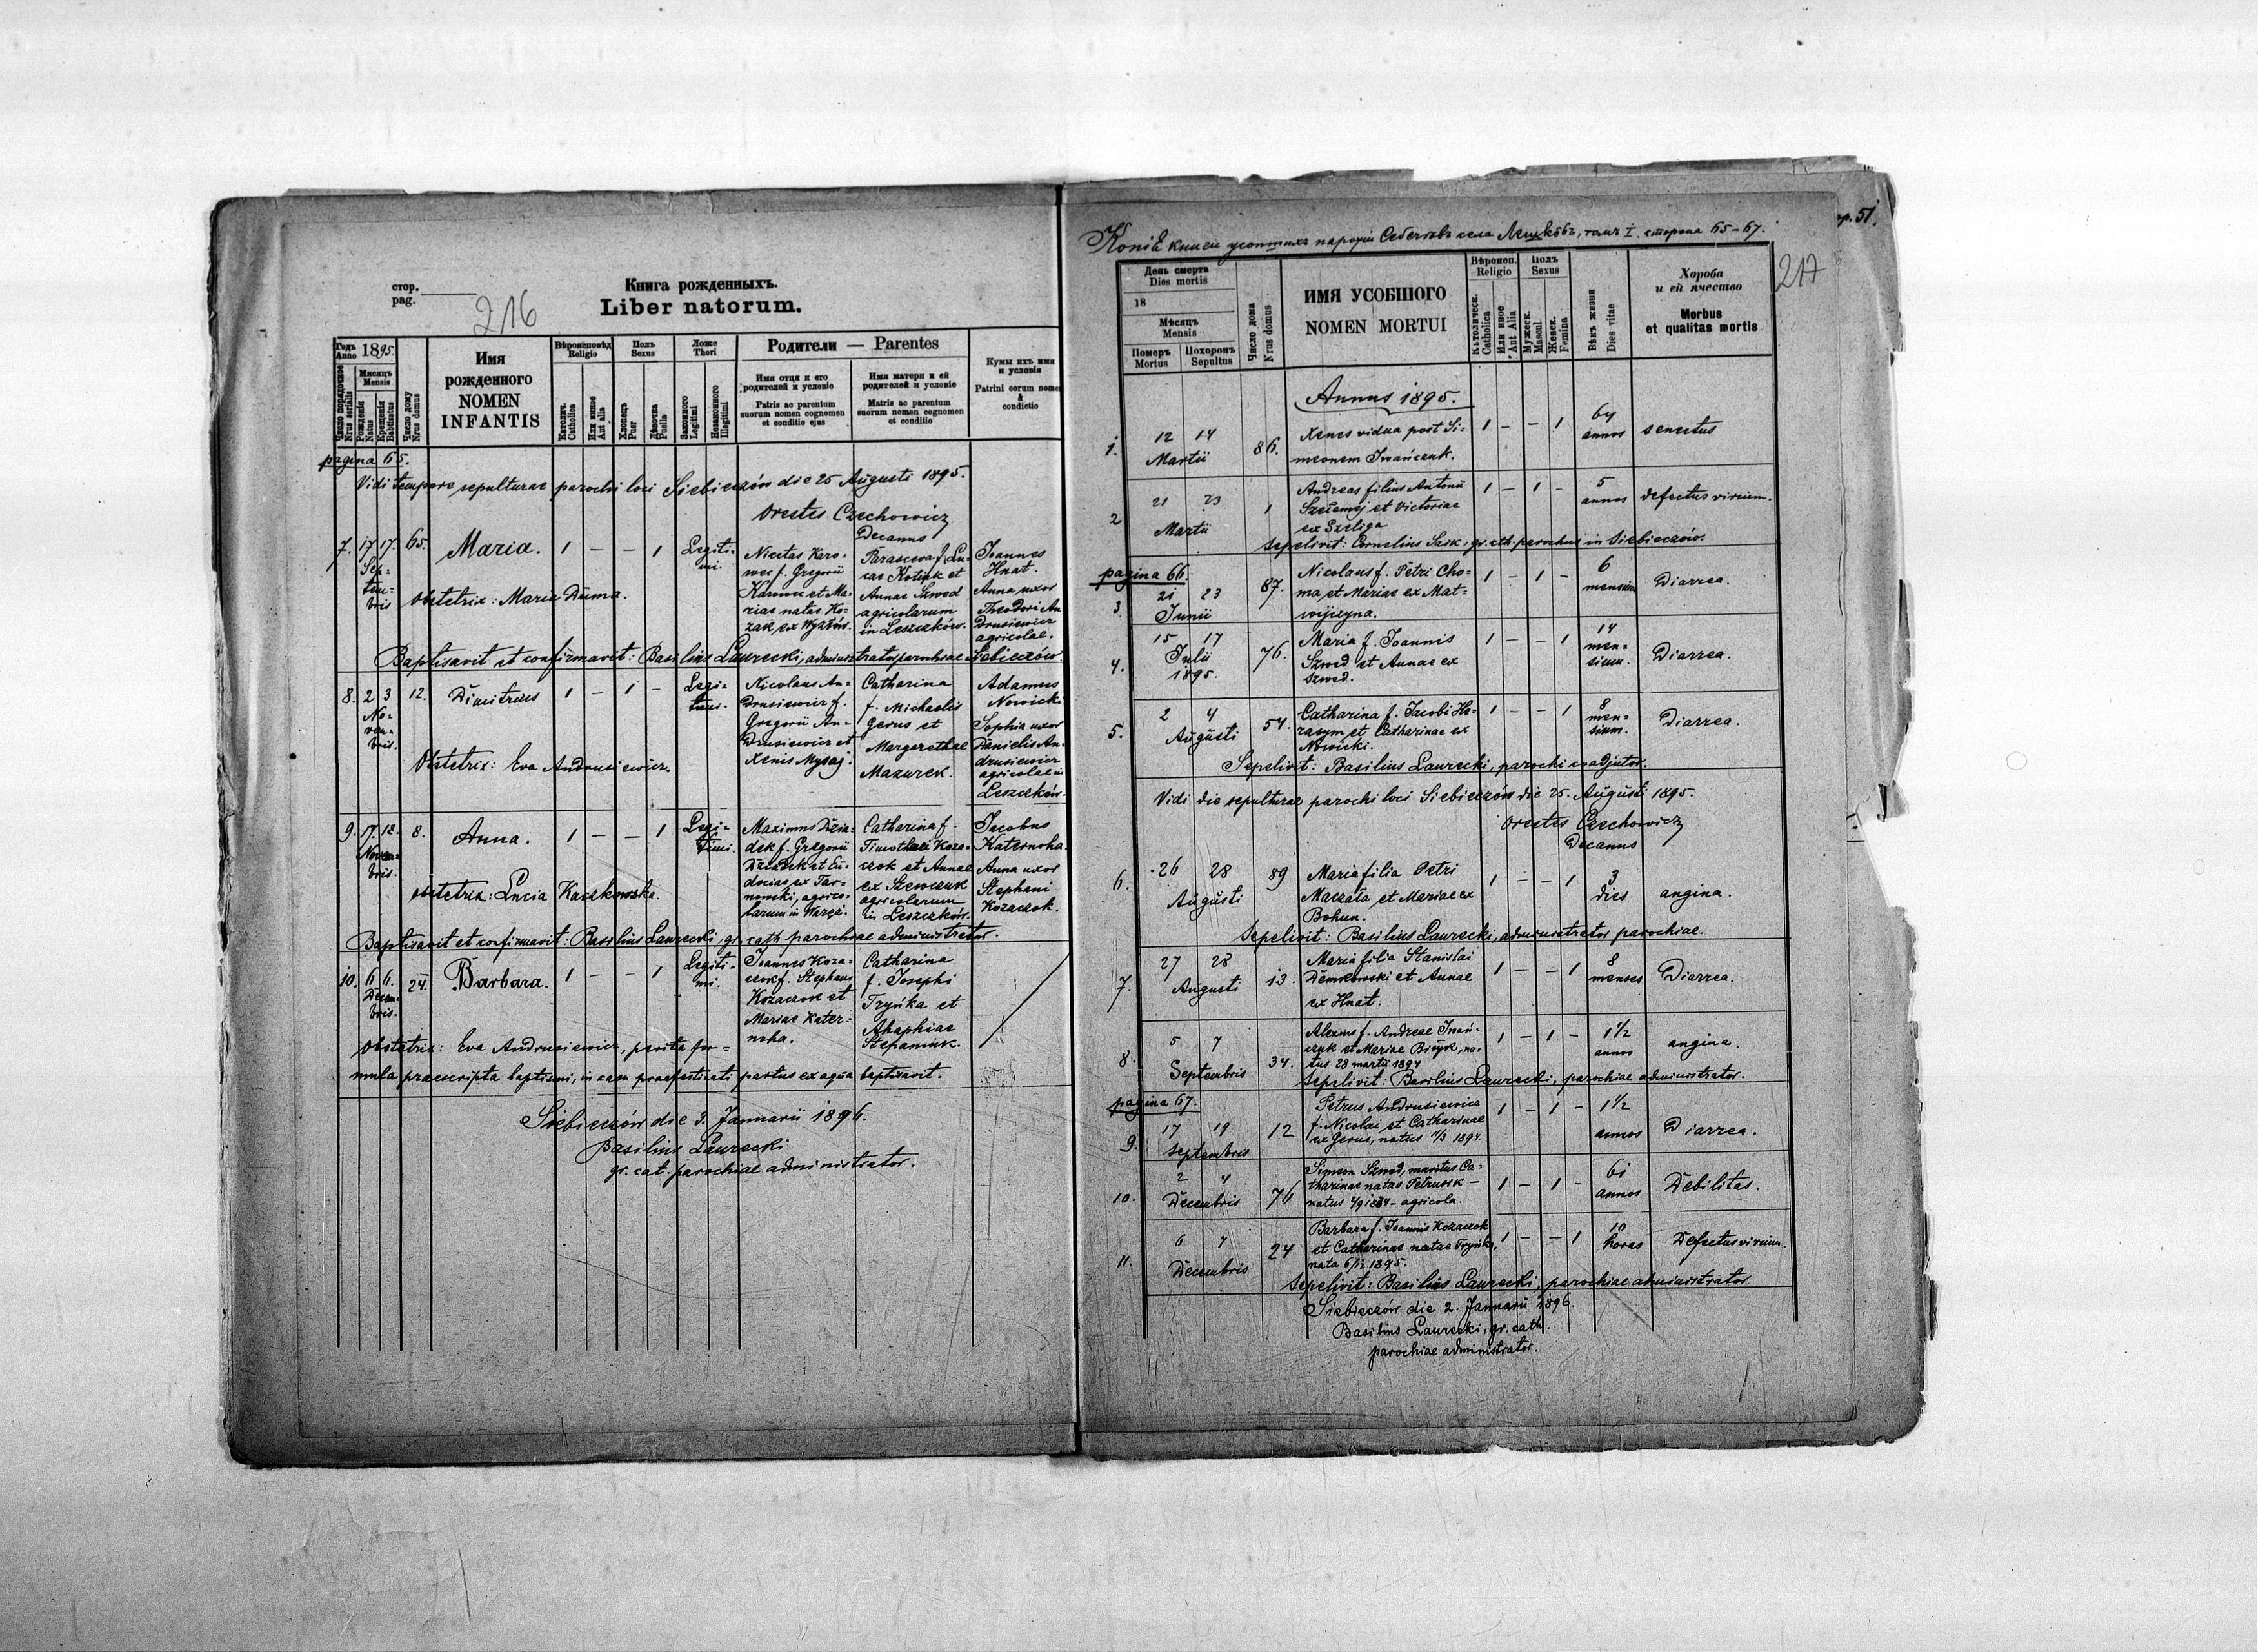 стор.
pag.
216
Книга рожденныхъ.
Liber natorum.
Годъ Anno 1895.
Число порядочное Nrus serialis
Мисяцъ Mensis
Рожденія Natus
Крещенія Baptisatus
Число дому Nrus domus
Имя рожденного
NOMEN INFANTIS
Вѣроисповѣд Religio
Католич. Catholica
Или иное Aut alia
Полъ Sexus
Хлопецъ Puer
Дѣвочка Puella
Ложе Thori
Законного Legitimi
Незаконного Illegitimi
Родители — Parentes
Имя отця и его родителей и условіе
Patris ac parentum suorum nomen cognomen et conditio ejus
Имя матери и ей родителей и условіе
Matris ac parentum suorum nomen cognomen et conditio
Кумы ихъ имя и условія
Patrini eorum nomen & conditio
pagina 65.
Vidi tempore sepulturae parochi loci Siebieczów die 25 Augusti 1895.
Orestes Czechowicz
Decanus
7. 17 17. Septembris 65. Maria. 1 — — 1 Legitimi.
Nicetas Karowec f. Gregorii Karowec et Mariae natae Kozak ex Wyżłów.
Parascewa f. Lucae Kotiuk et Annae Szwed agricolarum in Leszczków.
Joannes Hnat. Anna uxor Theodori Andrusiewicz agricolae.
Obstetrix: Maria Duma.
Baptisavit et confirmavit: Basilius Laurecki, administrator parochiae Siebieczów.
8. 2 3 Novembris. 12. Dimitrius 1 — 1 — Legitimi.
Nicolaus Andrusiewicz f. Gregorii Andrusiewicz et Xenis Mysaj.
Catharina f. Michaelis Gerus et Margarethae Mazurek.
Adamus Nowicki Sophia uxor Danielis Andrusiewicz agricolae in Leszczków.
Obstetrix: Eva Andrusiewicz.
9. 17. 12. Novembris. 8. Anna. 1 — — 1 Legitimi.
Maximus Dziadek f. Gregorii Dziadek et Eudociae ex Tarnowski, agricolarum in Waręż.
Catharina f. Timothei Kozaczok et Annae ex Szewczuk agricolarum in Leszczków.
Jacobus Katernoha. Anna uxor Stephani Kozaczok.
Obstetrix: Lucia Kaczkowska.
Baptisavit et confirmavit: Basilius Laurecki, gr. cath. parochiae administrator.
10. 6 6. Decembris. 24. Barbara. 1 — — 1 Legitimi.
Joannes Kozaczok f. Stephani Kozaczok et Mariae Katernoha.
Catharina f. Josephi Tryńka et Ahaphiae Stepaniuk.
Obstetrix: Eva Andrusiewicz, perita formula praescripta baptismi, in casu praefestinati partus ex aqua baptisavit.
Siebieczów die 3. Januarii 1896.
Basilius Laurecki
gr. cat. parochiae administrator.
стр. 51.
217
Копіѣ книги усопшихъ парохіи Себечовъ села Лешковъ, томъ I. сторона 65–67.
День смерти Dies mortis
18
Мѣсяцъ Mensis
Померъ Mortus
Похоронъ Sepultus
Число дома Nrus domus
ИМЯ УСОБШОГО
NOMEN MORTUI
Вѣроисп. Religio
Католическ. Catholica
Или иное Aut Alia
Полъ Sexus
Мужеск. Mascul
Женск. Femina
Вѣкъ жизни Dies vitae
Хороба и ей ячество
Morbus et qualitas mortis
Annus 1895.
1. 12 14 Martii 86. Xenes vidua post Simeonem Iwańczuk. 1 — — 1 64 annos senectus
2 21 23 Martii 1 Andreas filius Antonii Szełemej et Victoriae ex Szeliga 1 — 1 — 5 annos defectus virium.
Sepelivit: Cornelius Saik, gr. cth. parochus in Siebieczów.
pagina 66.
3 21 23 Junii 87. Nicolaus f. Petri Choma et Mariae ex Matwijczyna. 1 — 1 — 6 mensium Diarrea.
4. 15 17 Julii 1895. 76. Maria f. Joannis Szwed et Annae ex Szwed. 1 — — 1 14 mensium. Diarrea.
5. 2 4 Augusti 54. Catharina f. Jacobi Horasym et Catharinae ex Nowicki. 1 — — 1 8 mensium. Diarrea.
Sepelivit: Basilius Laurecki, parochi coadjutor.
Vidi die sepulturae parochi loci Siebieczów die 25. Augusti 1895.
Orestes Czechowicz
Decanus
6. 26 28 Augusti 89 Maria filia Petri Maczała et Mariae ex Bohun. 1 — — 1 3 dies angina.
Sepelivit: Basilius Laurecki, administrator parochiae.
7. 27 28 Augusti 13. Maria filia Stanislai Demkowski et Annae ex Hnat. 1 — — 1 8 menses Diarrea.
8. 5 7 Septembris 34. Alexius f. Andreae Iwańczuk et Mariae Bisyk, natus 28 martii 1894 1 — 1 — 1½ annos angina.
Sepelivit: Basilius Laurecki, parochiae administrator.
pagina 67.
9. 17 19 Septembris 12 Petrus Andrusiewicz f. Nicolai et Catharinae ex Gerus, natus 11/3 1894. 1 — 1 — 1½ annos Diarrea.
10. 2 4 Decembris 76 Simeon Szwed, maritus Catharinae natae Petrusik — natus 4/9 1834 — agricola. 1 — 1 — 61 annos Debilitas.
11. 6 7 Decembris 24 Barbara f. Joannis Kozaczok et Catharinae natae Tryńka, nata 6/12 1895. 1 — — 1 10 horas Defectus virium.
Sepelivit: Basilius Laurecki, parochiae administrator
Siebieczów die 2. Januarii 1896.
Basilius Laurecki, gr. cath.
parochiae administrator.